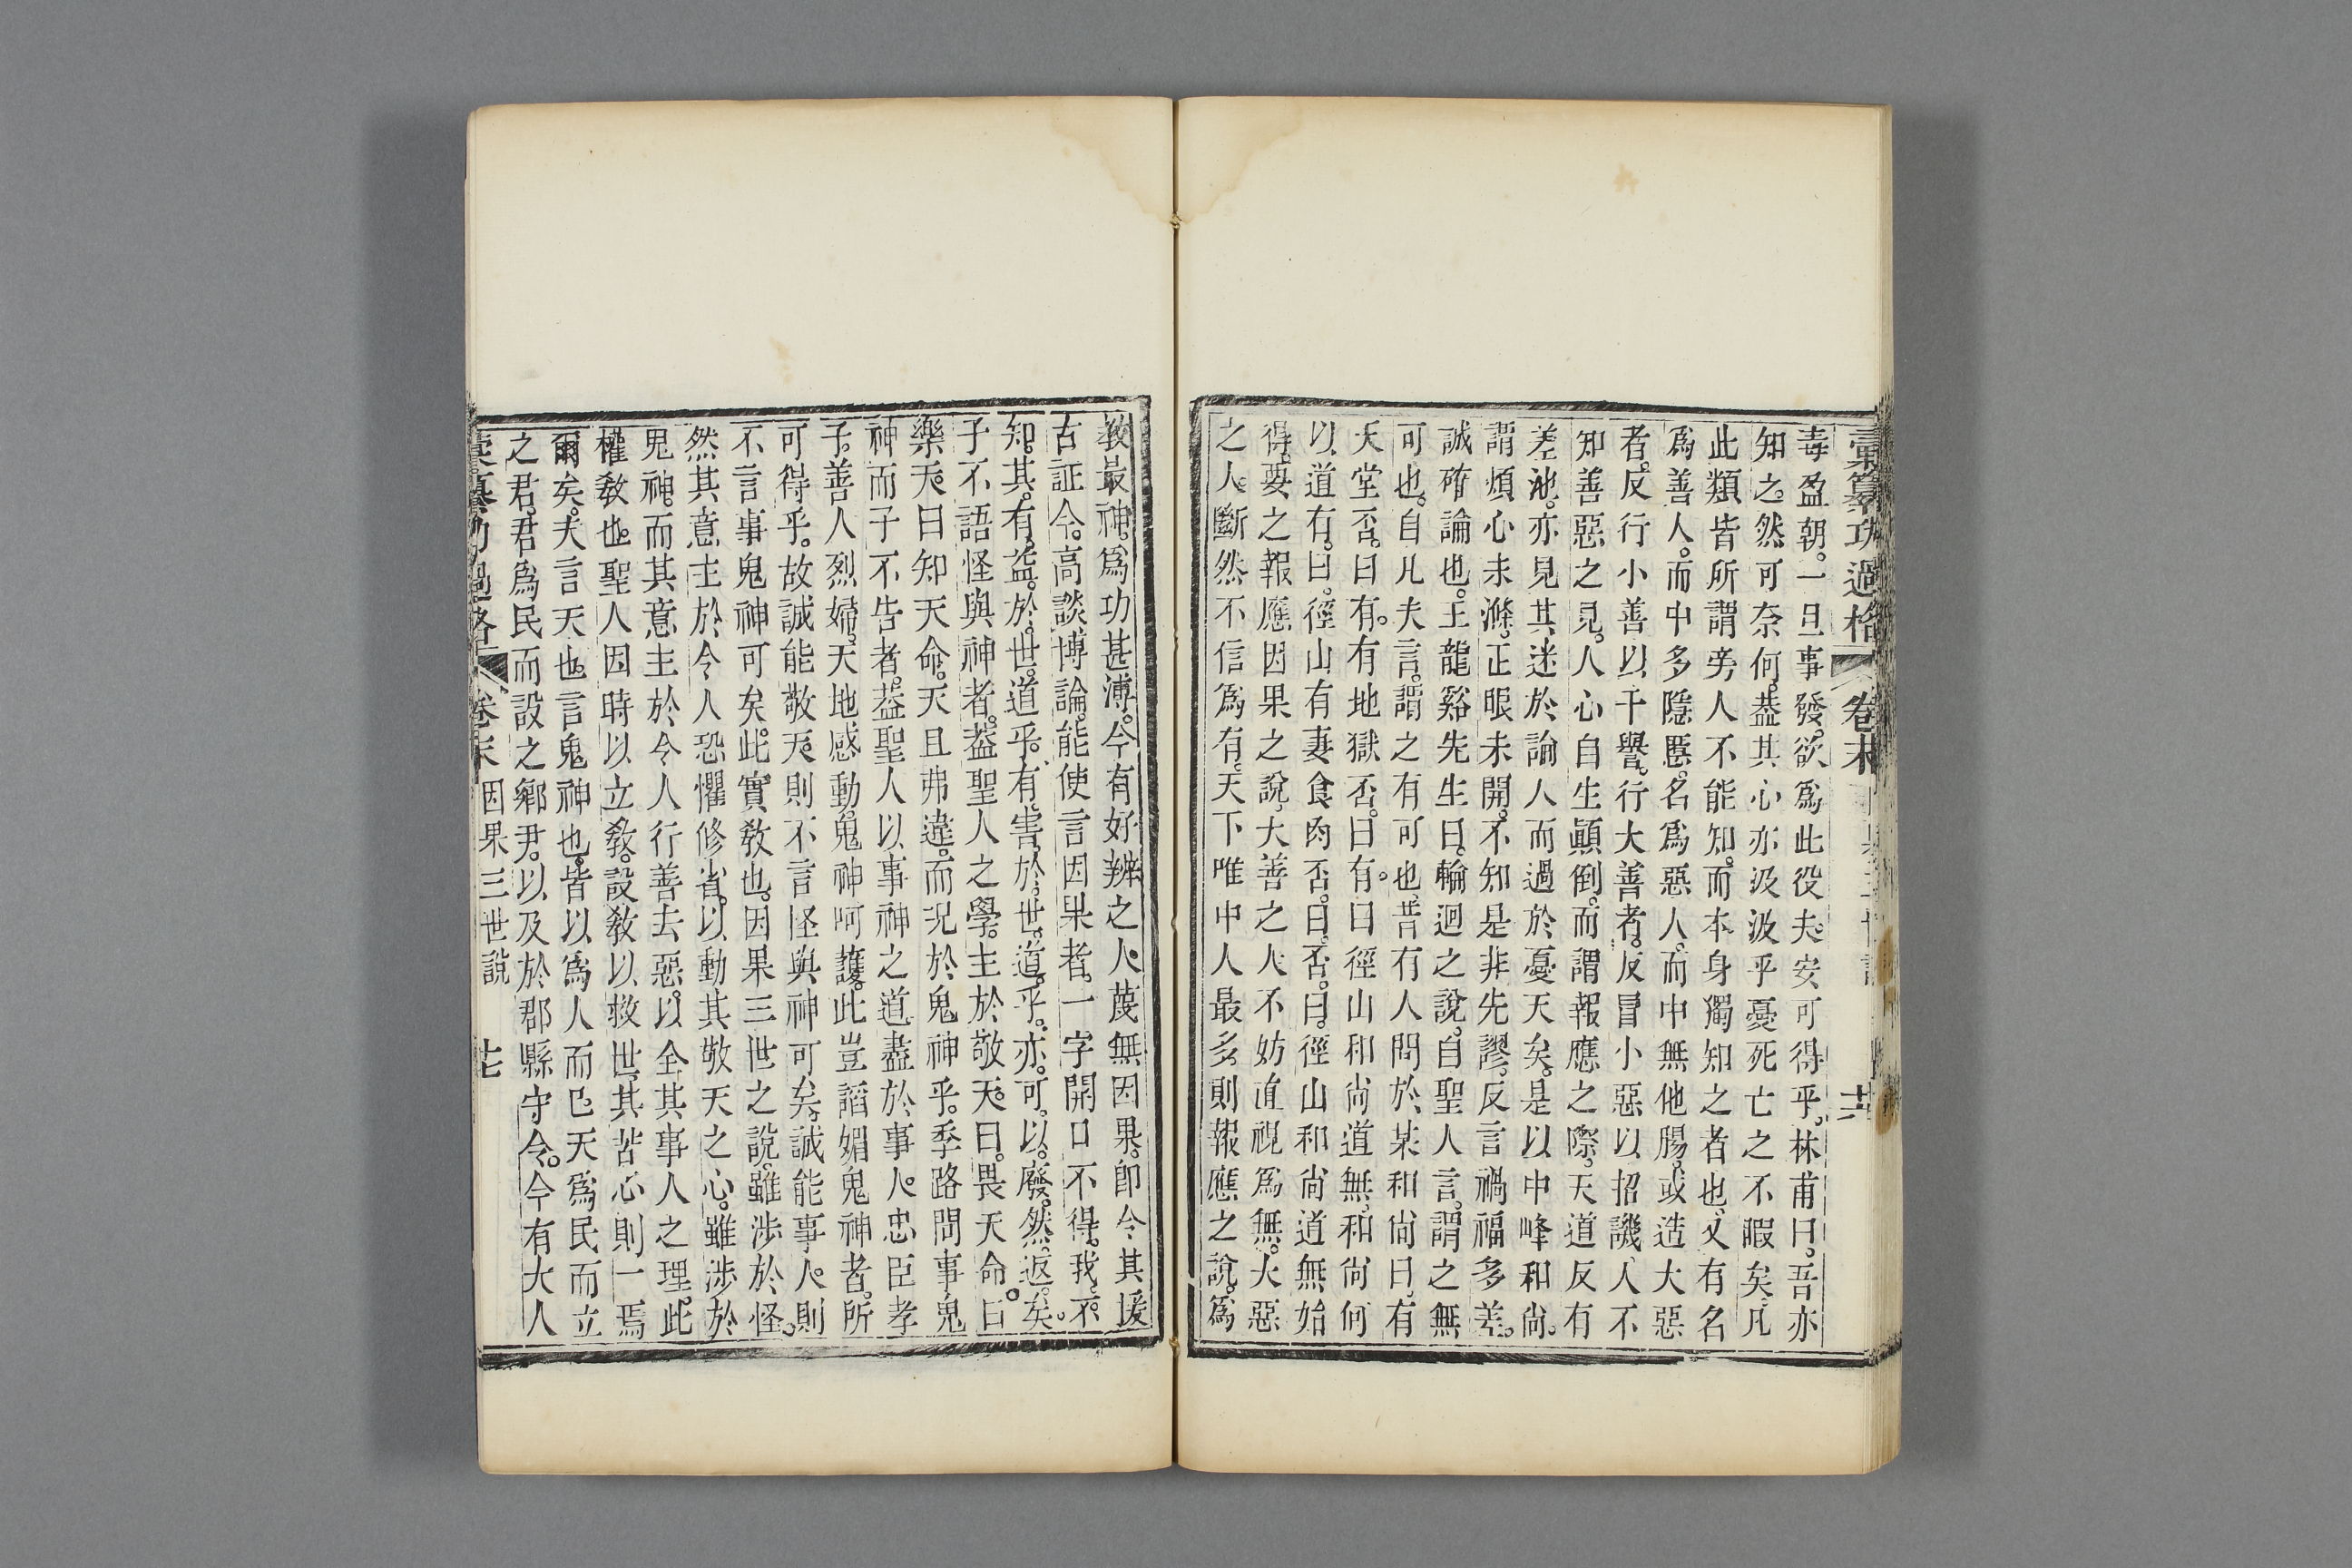 彙纂功過格 卷末 十六
毒盈朝。一旦事發。欲爲此役夫。安可得乎。林甫曰。吾亦
知之。然可奈何。葢其心亦汲汲乎憂死亡之不暇矣。凡
此類皆所謂旁人不能知。而本身獨知之者也。又有名
爲善人。而中多隱慝。名爲惡人。而中無他腸。或造大惡
者。反行小善以干譽。行大善者。反冒小惡以招譏。人不
知善惡之見。人心自生顚倒。而謂報應之際。天道反有
差池。亦見其迷於論人而過於憂天矣。是以中峰和尙。
謂煩心未滌。正眼未開。不知是非先謬。反言禍福多差。
誠確論也。王龍谿先生曰。輪迴之說。自聖人言。謂之無
可也。自凡夫言。謂之有可也。昔有人問於某和尙曰。有
天堂否。曰有。有地獄否。曰有。曰徑山和尙道無。和尙何
以道有。曰。徑山有妻食肉否。曰。否。曰。徑山和尙道無始
得。要之報應因果之說。大善之人不妨直視爲無。大惡
之人。斷然不信爲有。天下唯中人最多。則報應之說。爲
敎最神。爲功甚溥。今有好辨之人。蔑無因果。卽令其援
古証今。高談博論。能使言因果者。一字開口不得。我。不。
知。其。有。益。於。世。道。乎。有。害。於。世。道。乎。亦。可。以。廢。然。返。矣。
子不語怪與神者。葢聖人之學。主於敬天。曰。畏天命。曰
樂天。曰知天命。天且弗違。而況於鬼神乎。季路問事鬼
神而子不告者。葢聖人以事神之道。盡於事人。忠臣孝
子。善人烈婦。天地感動。鬼神呵護。此豈謟媚鬼神者。所
可得乎。故誠能敬天。則不言怪與神可矣。誠能事人。則
不言事鬼神可矣。此實敎也。因果三世之說。雖涉於怪。
然其意主於令人恐懼修省。以動其敬天之心。雖涉於
鬼神。而其意主於令人行善去惡。以全其事人之理。此
權敎也。聖人因時以立敎。設敎以救世。其苦心則一焉
爾矣。夫言天也。言鬼神也。皆以爲人而巳。天爲民而立
之君。君爲民而設之鄕尹。以及於郡縣守令。今有大人
彙纂功過格 卷末 因果三世說 十七